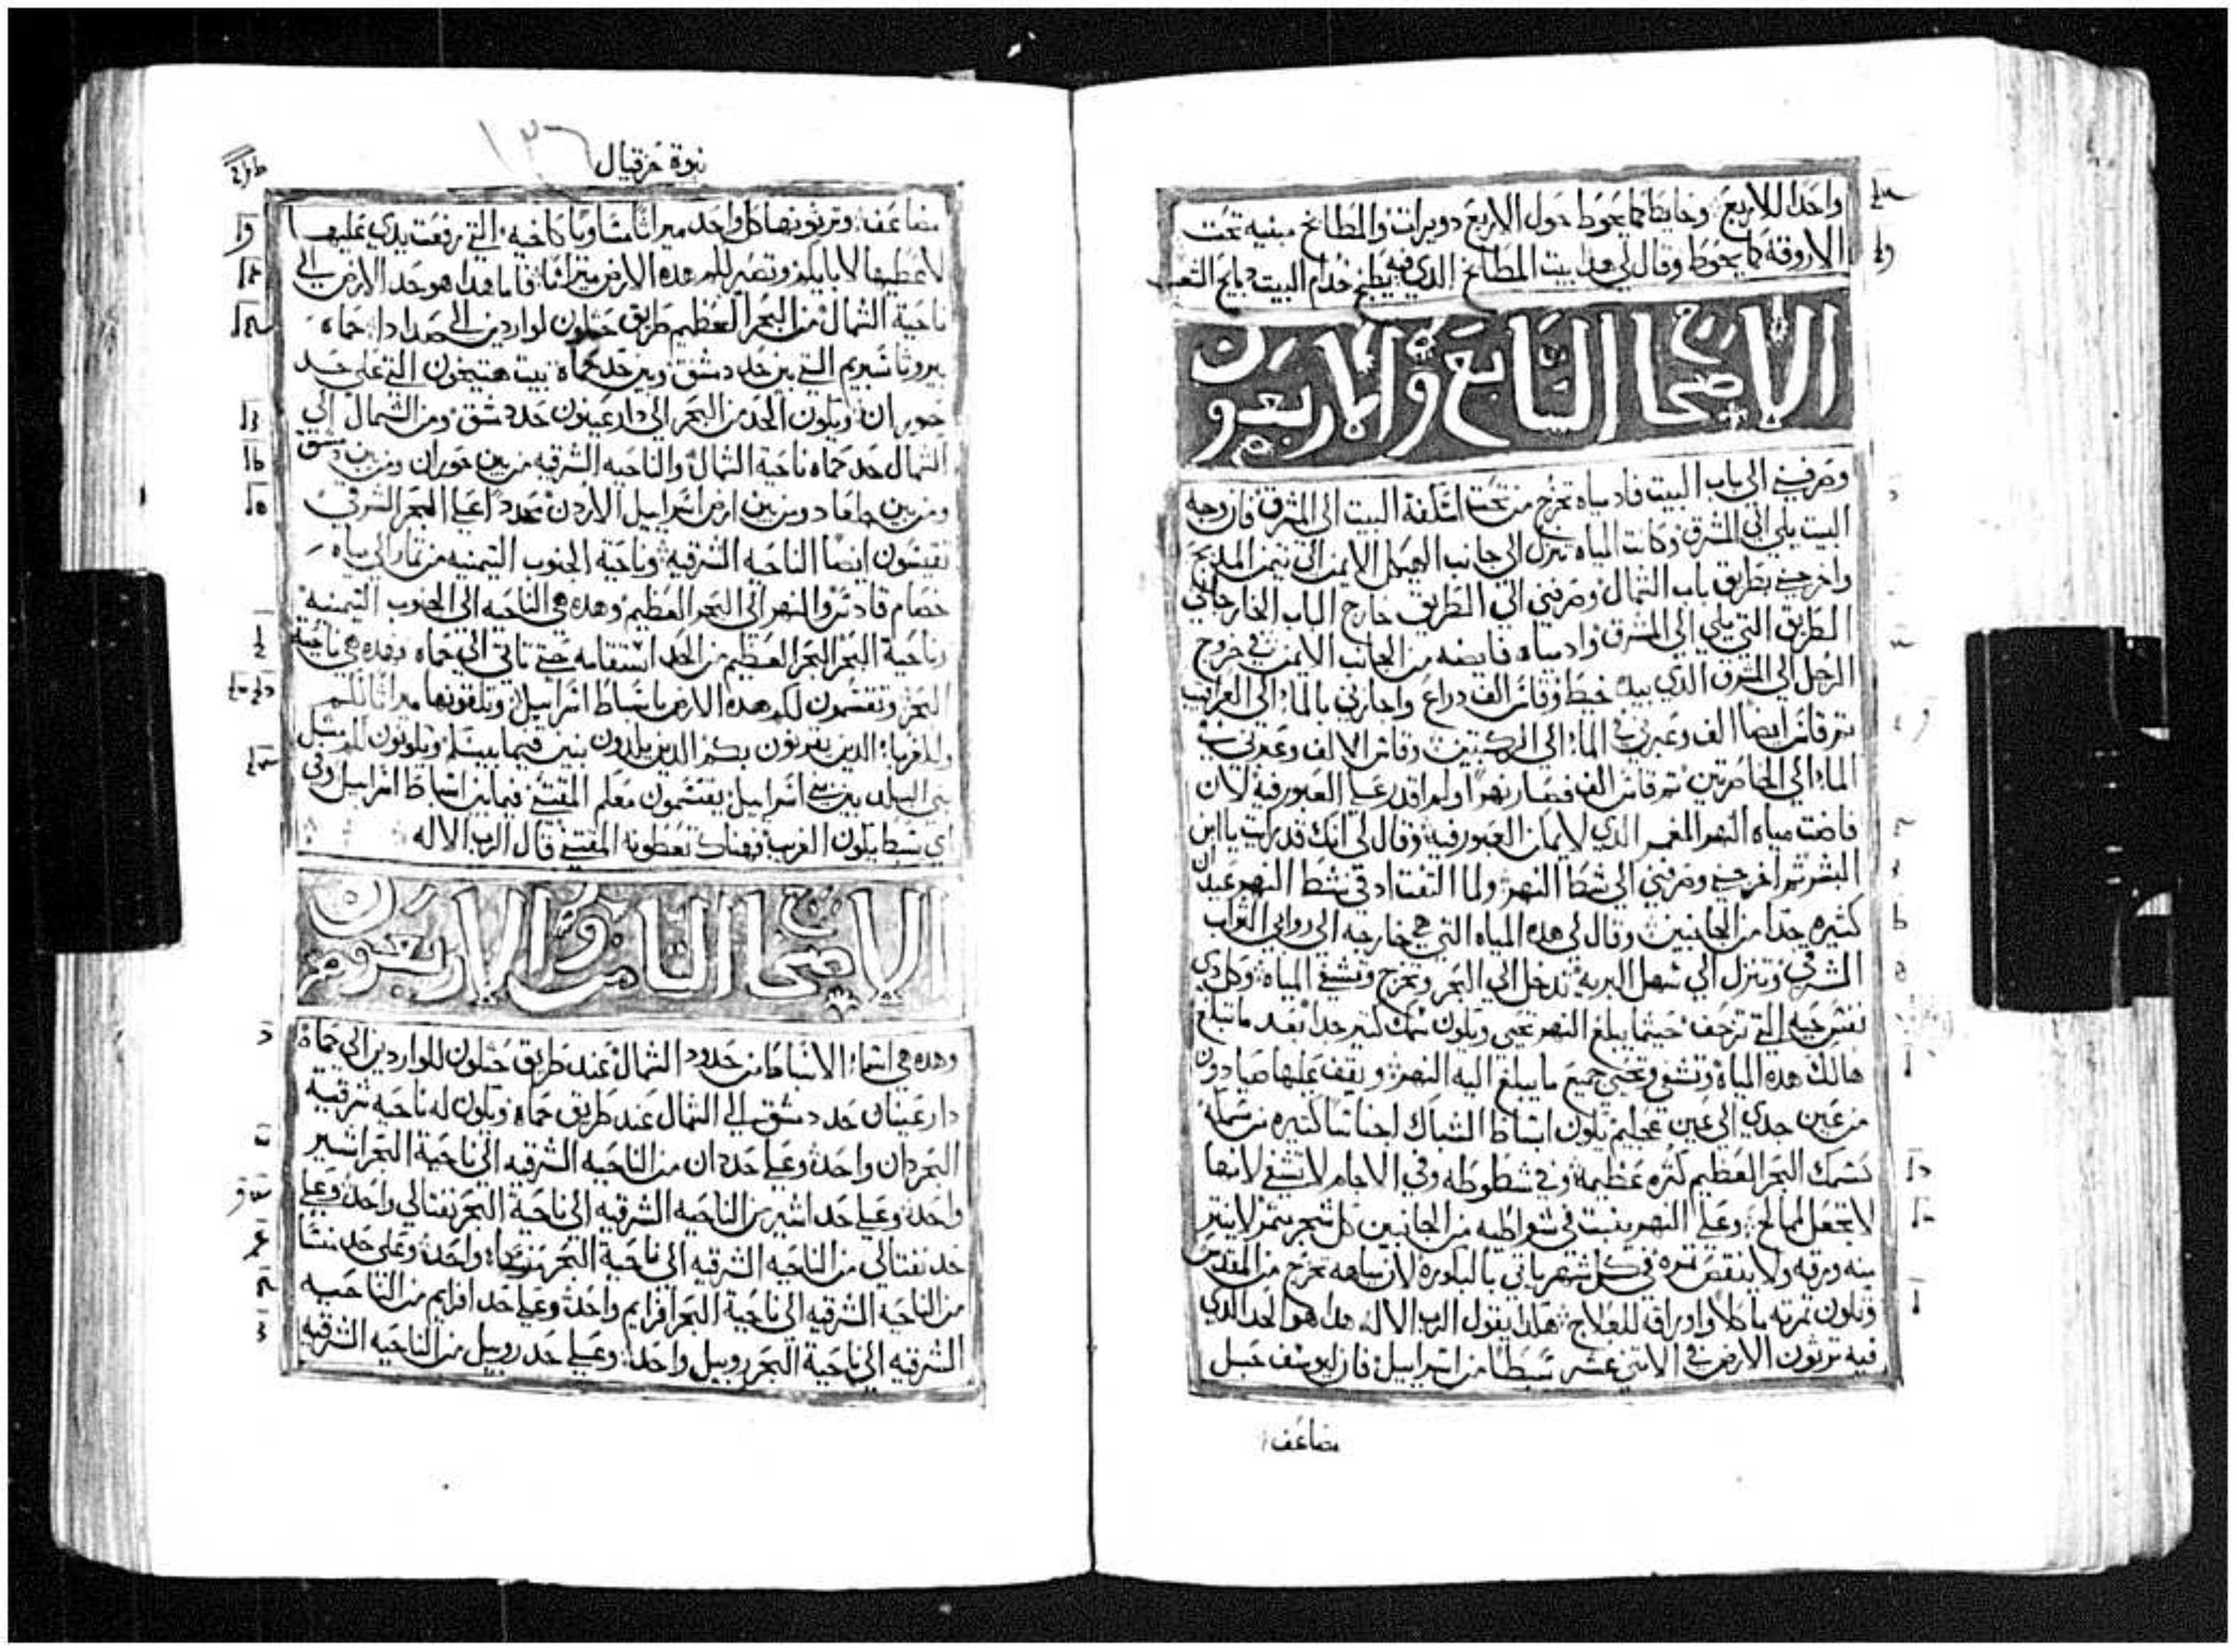 واحدا للاربع وحايطا كما يحوط حول الاربع دويرات والمطابخ مبنيه تحت
الاروقه كما يحوط وقال لي هدا بيت المطابخ الدي فيه يطبخ خدام البيت دبايح الشعب
الاصحاح السابع والاربعون
وصرفني الى باب البيت فادا مياه تخرج من تحت اسكفة البيت الى المشرق فان وجه
البيت يلي الى المشرق وكانت المياه تنزل الى جانب الهيكل الايمن الى تيمن المدبح
واخرجني بطريق باب الشمال وصرفني الى الطريق خارج الباب الخارجاني
الطريق التي يلي الى المشرق وادا مياه فايضه من الجانب الايمن في خروج
الرجل الى المشرق الدي بيده خيط وقاس الف دراع واجازني بالماء الى العراقيب
تم قاس ايضا الف وعبرني في الماء الى الركبتين وقاس الالف وعبرني في
الماء الى الخاصرتين تم قاس الف فصار نهرا ولم اقدر على العبور فيه لان
فاضت مياه النهر المغمر الدي لا يمكن العبور فيه وقال لي انك قد رايت يا ابن
البشر تم اخرجني وصرفني الى شط النهر ولما التفت ادا في شط النهر عيدان
كثيره جدا من الجانبين وقال لي هده المياه التي هي خارجه الى روابي التراب
الشرقي وتنزل الى سهل البريه تدخل الى البحر وتخرج وتشفي المياه وكل دي
نفس حيه التي تزحف حيثما يبلغ النهر تحيى ويكون سمك كتير جدا بعد ما تبلغ
هنالك هده المياه وتشفى وتحيى جميع ما يبلغ اليه النهر ويقف عليها صيادون
من عين جدي الى عين عجليم يكون انبساط الشباك اجناسا كتيره من سمكه
كسمك البحر العظيم كثره عظيمة وفي شطوطه وفي الاجام لا تشفى لانها
لا تجعل لممالح وعلى النهر ينبت في شواطيه من الجانبين كل شجر يتمر لا ينتر
منه ورقه ولا ينقص تمره في كل شهر ياتي بالباكوره لان مياهه تخرج من المقدس
وتكون تمرته ماكلا واوراقه للعلاج هكدا يقول الرب الاله هدا هو الحد الدي
فيه ترتون الارض في الاتني عشر سبطا من اسراييل فان ليوسف حبل
مضاعف
نبوة حزقيال
١٣٦
مضاعف وترتونها كل واحد ميراتا متساويا كاخيه التي رفعت يدي عليها
لاعطيها لابايكم وتصير لكم هده الارض ميراتا فاما هدا هو حد الارض الى
ناحية الشمال من البحر العظيم طريق حتلون لواردين الى صدادا حماه
بيروتا سبريم التي بين حد دمشق وبين حد حماه بيت هتيخون التي على حد
حوران ويكون الحد من البحر الى دار عينون حد دمشق ومن الشمال الى
الشمال حد حماه ناحية الشمال والناحيه الشرقيه من بين حوران ومن بين دمشق
ومن بين جلعاد ومن بين ارض اسراييل الاردن تحدد اعلى البحر الشرقي
تقيسون ايضا الناحيه الشرقيه وناحية الجنوب التيمنيه من تمار الى مياه
خصام قادس والنهر الى البحر العظيم وهده هي الناحيه الى الجنوب التيمنيه
وناحية البحر البحر العظيم من الحد استقامه حتى تاتي الى حماه وهده هي ناحية
البحر وتقتسمون لكم هده الارض باسباط اسراييل وتلقونها ميراتا لكم
وللغربا الدين يقربون بكم الدين يلدون بنين فيما بينكم ويكونون لكم مثل
بني البلد بين بني اسراييل يقتسمون معكم المقتنى فيما بين اسباط اسراييل وفي
اي سبط يكون الغريب فهناك تعطونه المقتنى قال الرب الاله
الاصحاح التامن والاربعون
وهده هي اسماء الاسباط من حدود الشمال عند طريق حتلون للواردين الى حماة
دار عينان حد دمشق الى الشمال عند طريق حماه ويكون له ناحيه شرقيه
البحر دان واحده وعلى حد دان من الناحيه الشرقيه الى ناحية البحر اشير
واحده وعلى حد اشير من الناحيه الشرقيه الى ناحية البحر نفتالي واحده وعلى
حد نفتالي من الناحيه الشرقيه الى ناحية البحر منسا واحده وعلى حد منسا
من الناحيه الشرقيه الى ناحية البحر افرايم واحده وعلى حد افرايم من الناحيه
الشرقيه الى ناحية البحر روبيل واحده وعلى حد روبيل من الناحيه الشرقيه